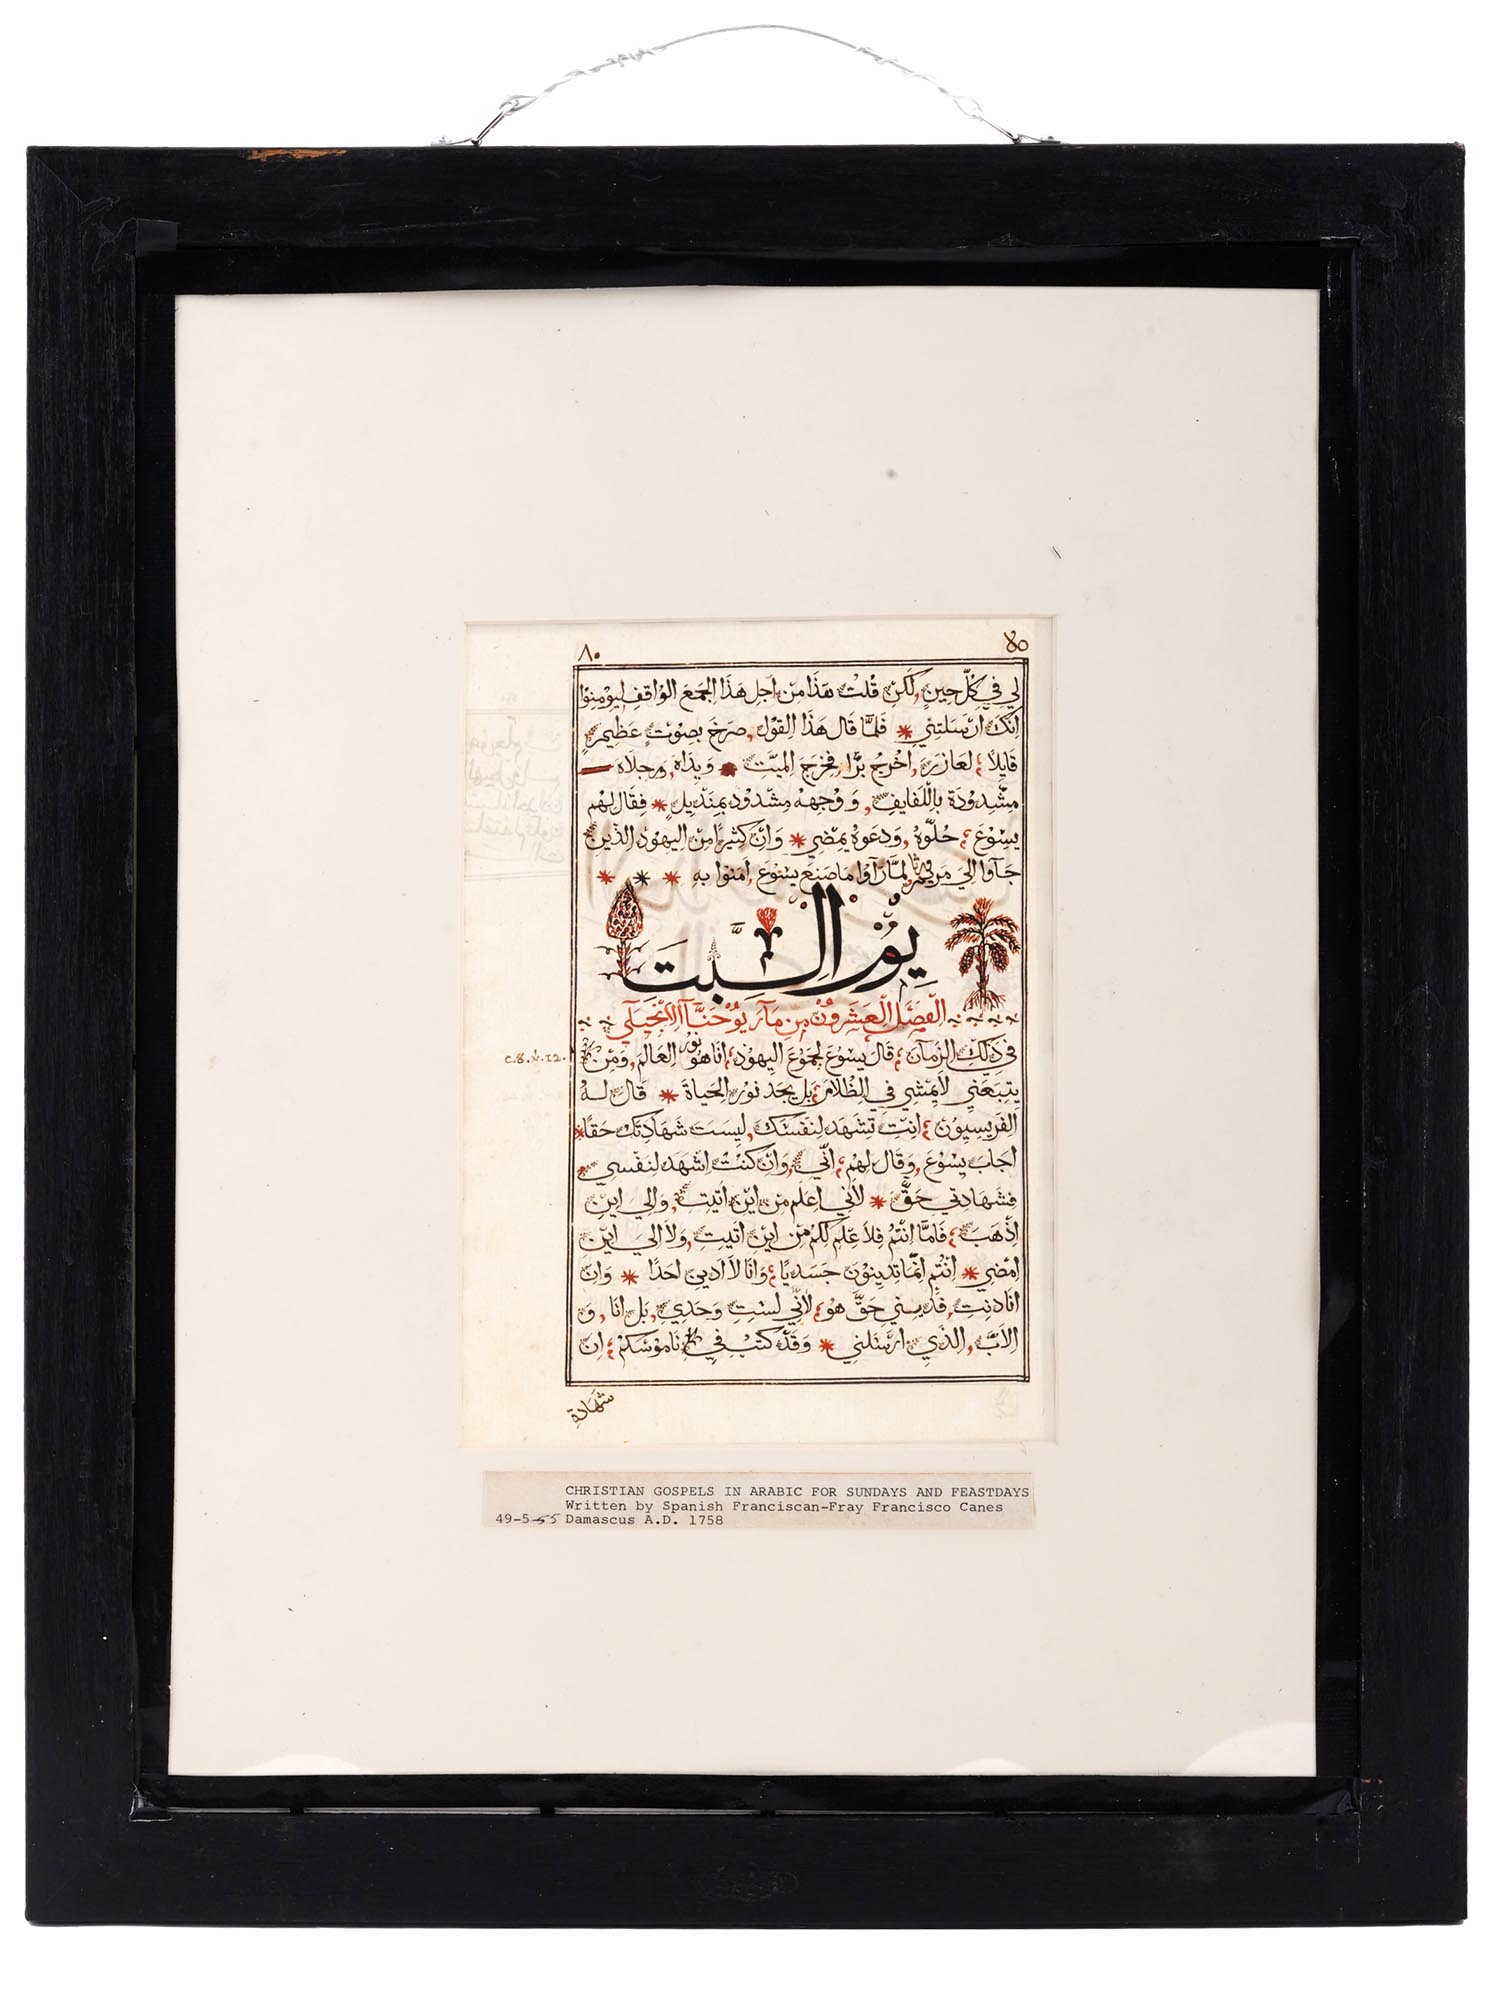 ٨٠
لي في كلّ حين، لكن قلت هذا من اجل هذا الجمع الواقف ليومنوا
انك ارسلتني * فلما قال هذا القول، صرخ بصوت عظيم
قايلاً؛ لعازر، اخرج برّا، فخرج الميت * ويداه، ورجلاه
مشدودة باللفايف، ووجهه مشدود بمنديل * فقال لهم
يسوع؛ حلّوه، ودعوه يمضي * وان كثيرًا من اليهود الذين
جآوا الي مريم لمّا رآوا ما صنع يسوع، امنوا به * * *
يوم السبت
الفصل العشرون من مار يوحنا الانجيلي
c.8.v.12.
في ذلك الزمان؛ قال يسوع لجموع اليهود؛ انا هو نور العالم، ومن
يتبعني لا يمشي في الظلام؛ بل يجد نور الحياة * قال له
الفريسيون؛ انت تشهد لنفسك، ليست شهادتك حقا *
اجاب يسوع، وقال لهم؛ انّي، وان كنت اشهد لنفسي
فشهادتي حقّ * لاني اعلم من اين اتيت، والي اين
اذهب؛ فامّا انتم فلا علم لكم من اين اتيت، ولا الي اين
امضي * انتم انّما تدينون جسديا؛ وانا لا ادين احدًا * وان
انا دنت، فديني حقّ هو؛ لانّي لست وحدي، بل انا، و
الابّ، الذي ارسلني * وقد كتب في ناموسكم؛ ان
شهادة
CHRISTIAN GOSPELS IN ARABIC FOR SUNDAYS AND FEASTDAYS
Written by Spanish Franciscan-Fray Francisco Canes
49-5-55 Damascus A.D. 1758